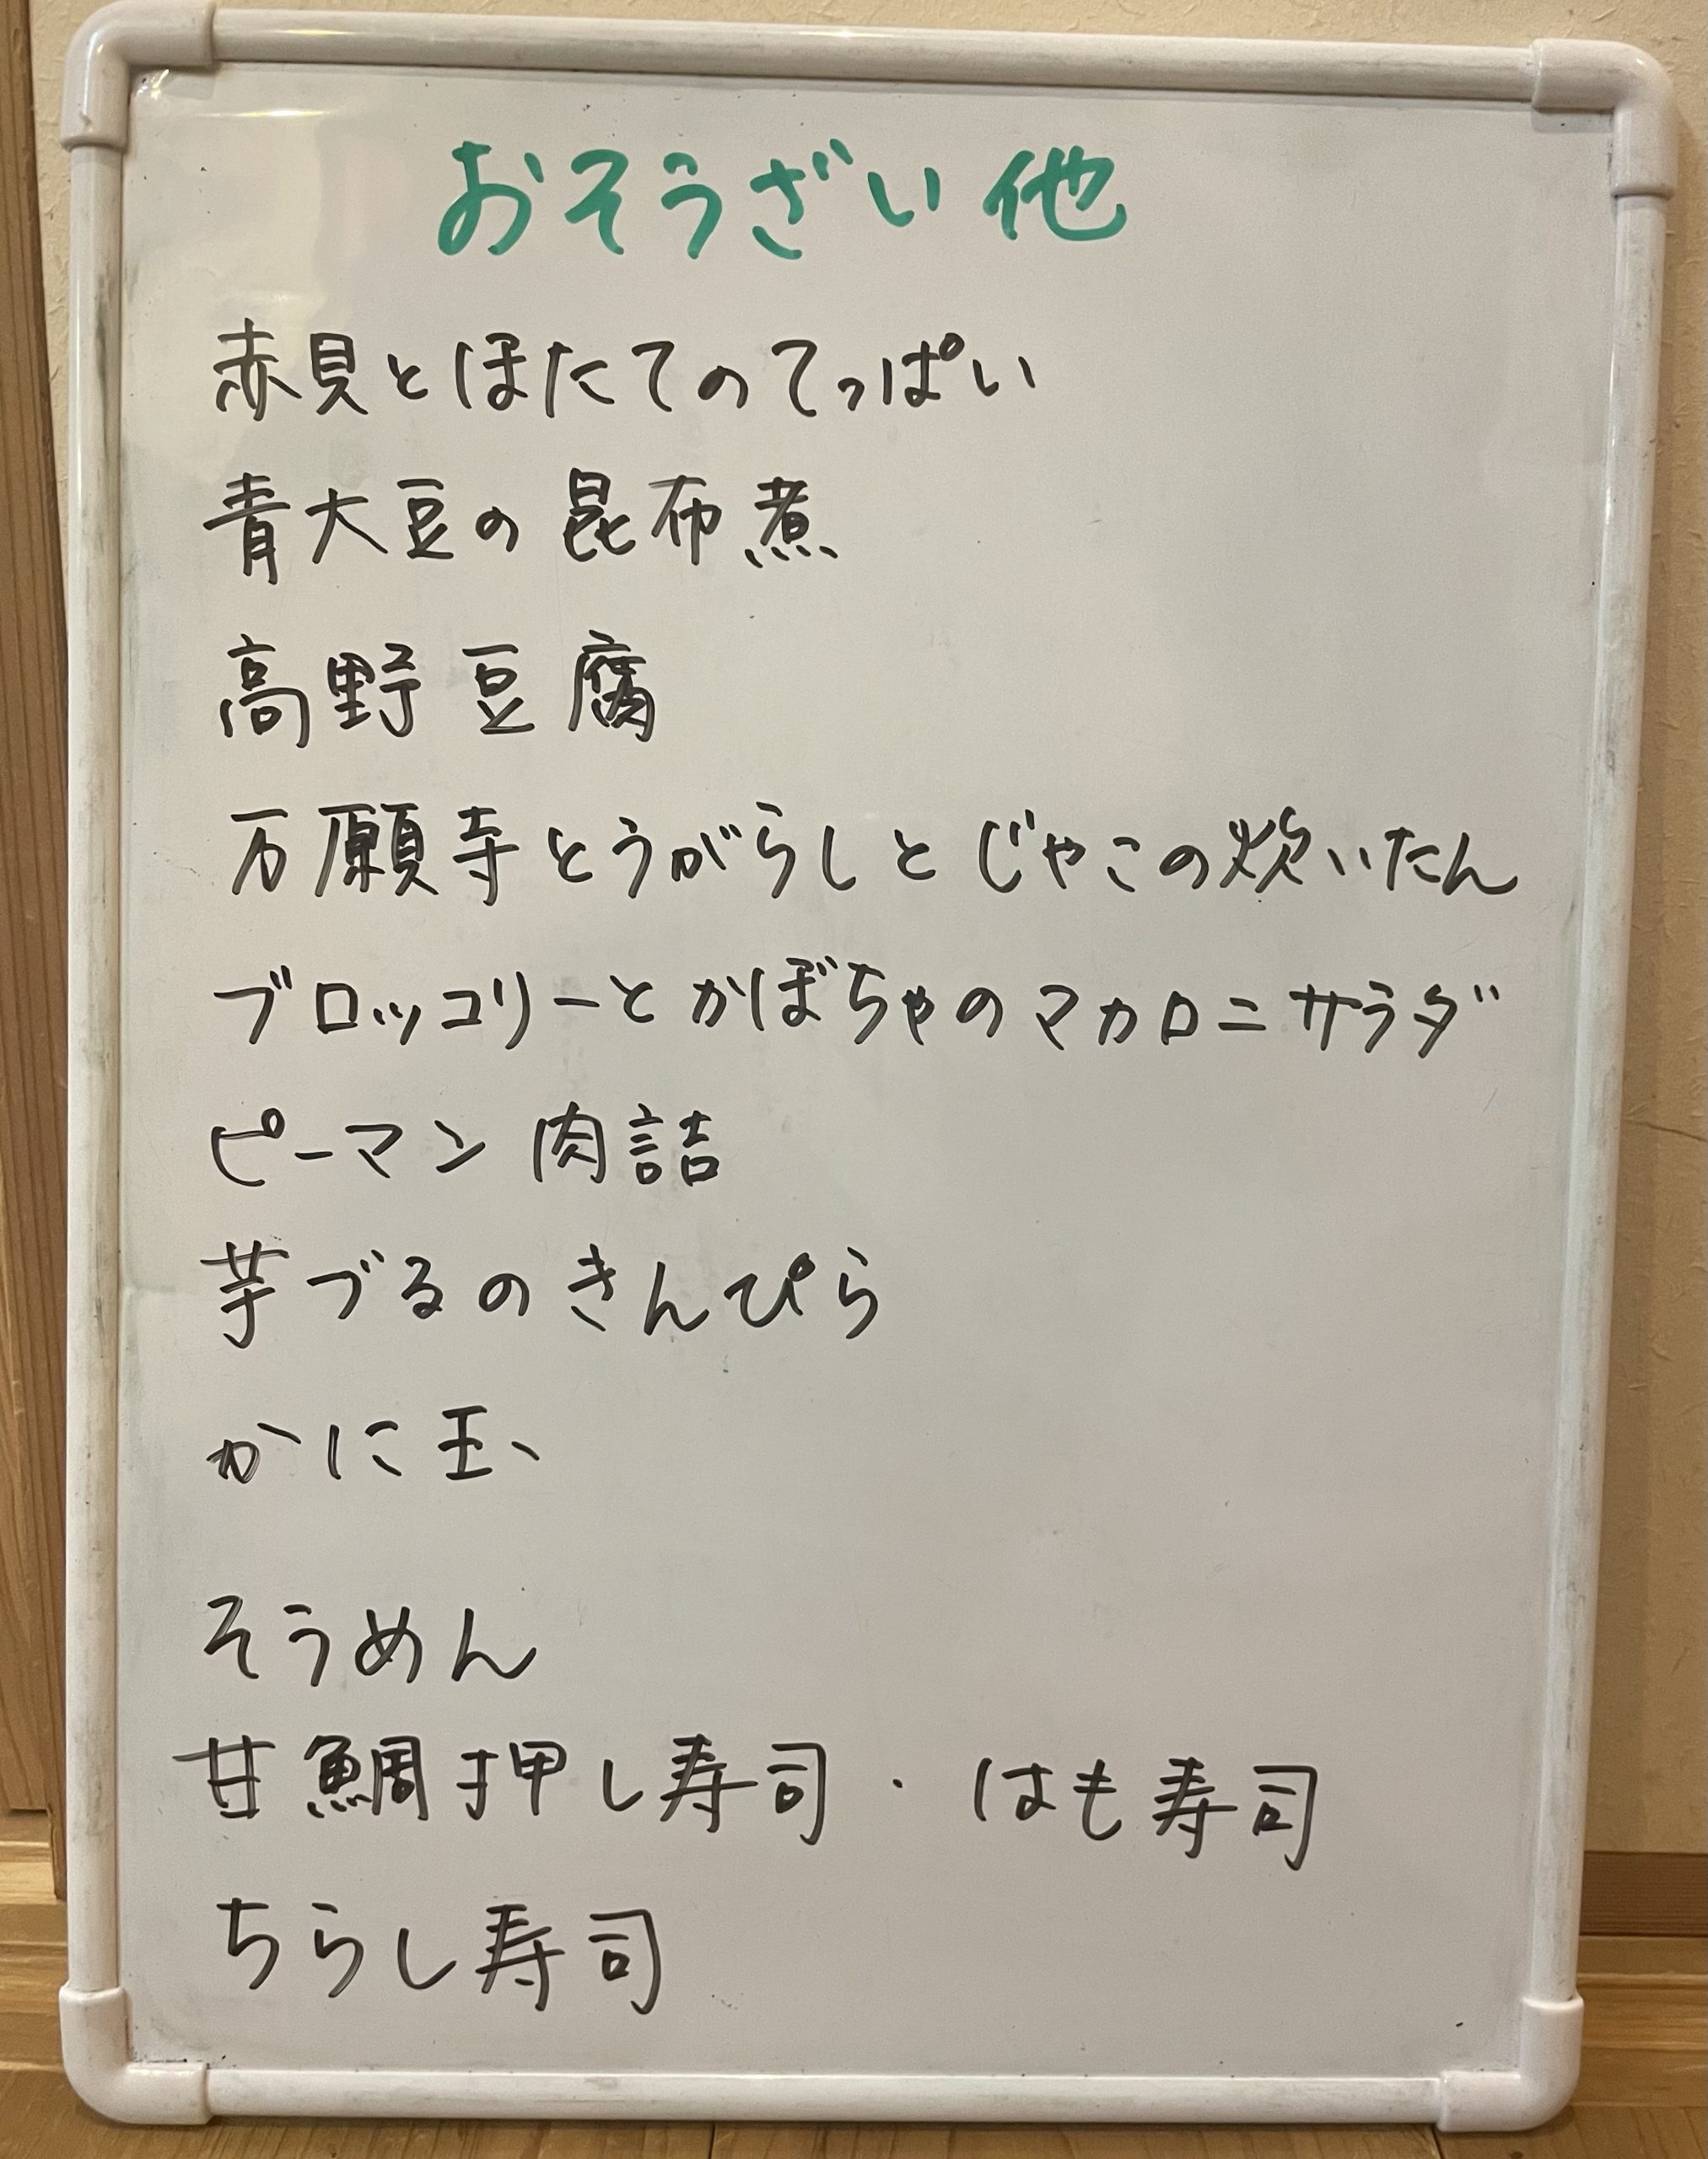 おそうざい他
赤貝とほたてのてっぱい
青大豆の昆布煮
高野豆腐
万願寺とうがらしとじゃこの炊いたん
ブロッコリーとかぼちゃのマカロニサラダ
ピーマン肉詰
芋づるのきんぴら
かに玉
そうめん
甘鯛押し寿司・はも寿司
ちらし寿司